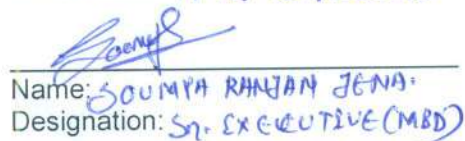 Name: SOUMYA RANJAN JENA.
Designation: Sr. EXECUTIVE (MBD)